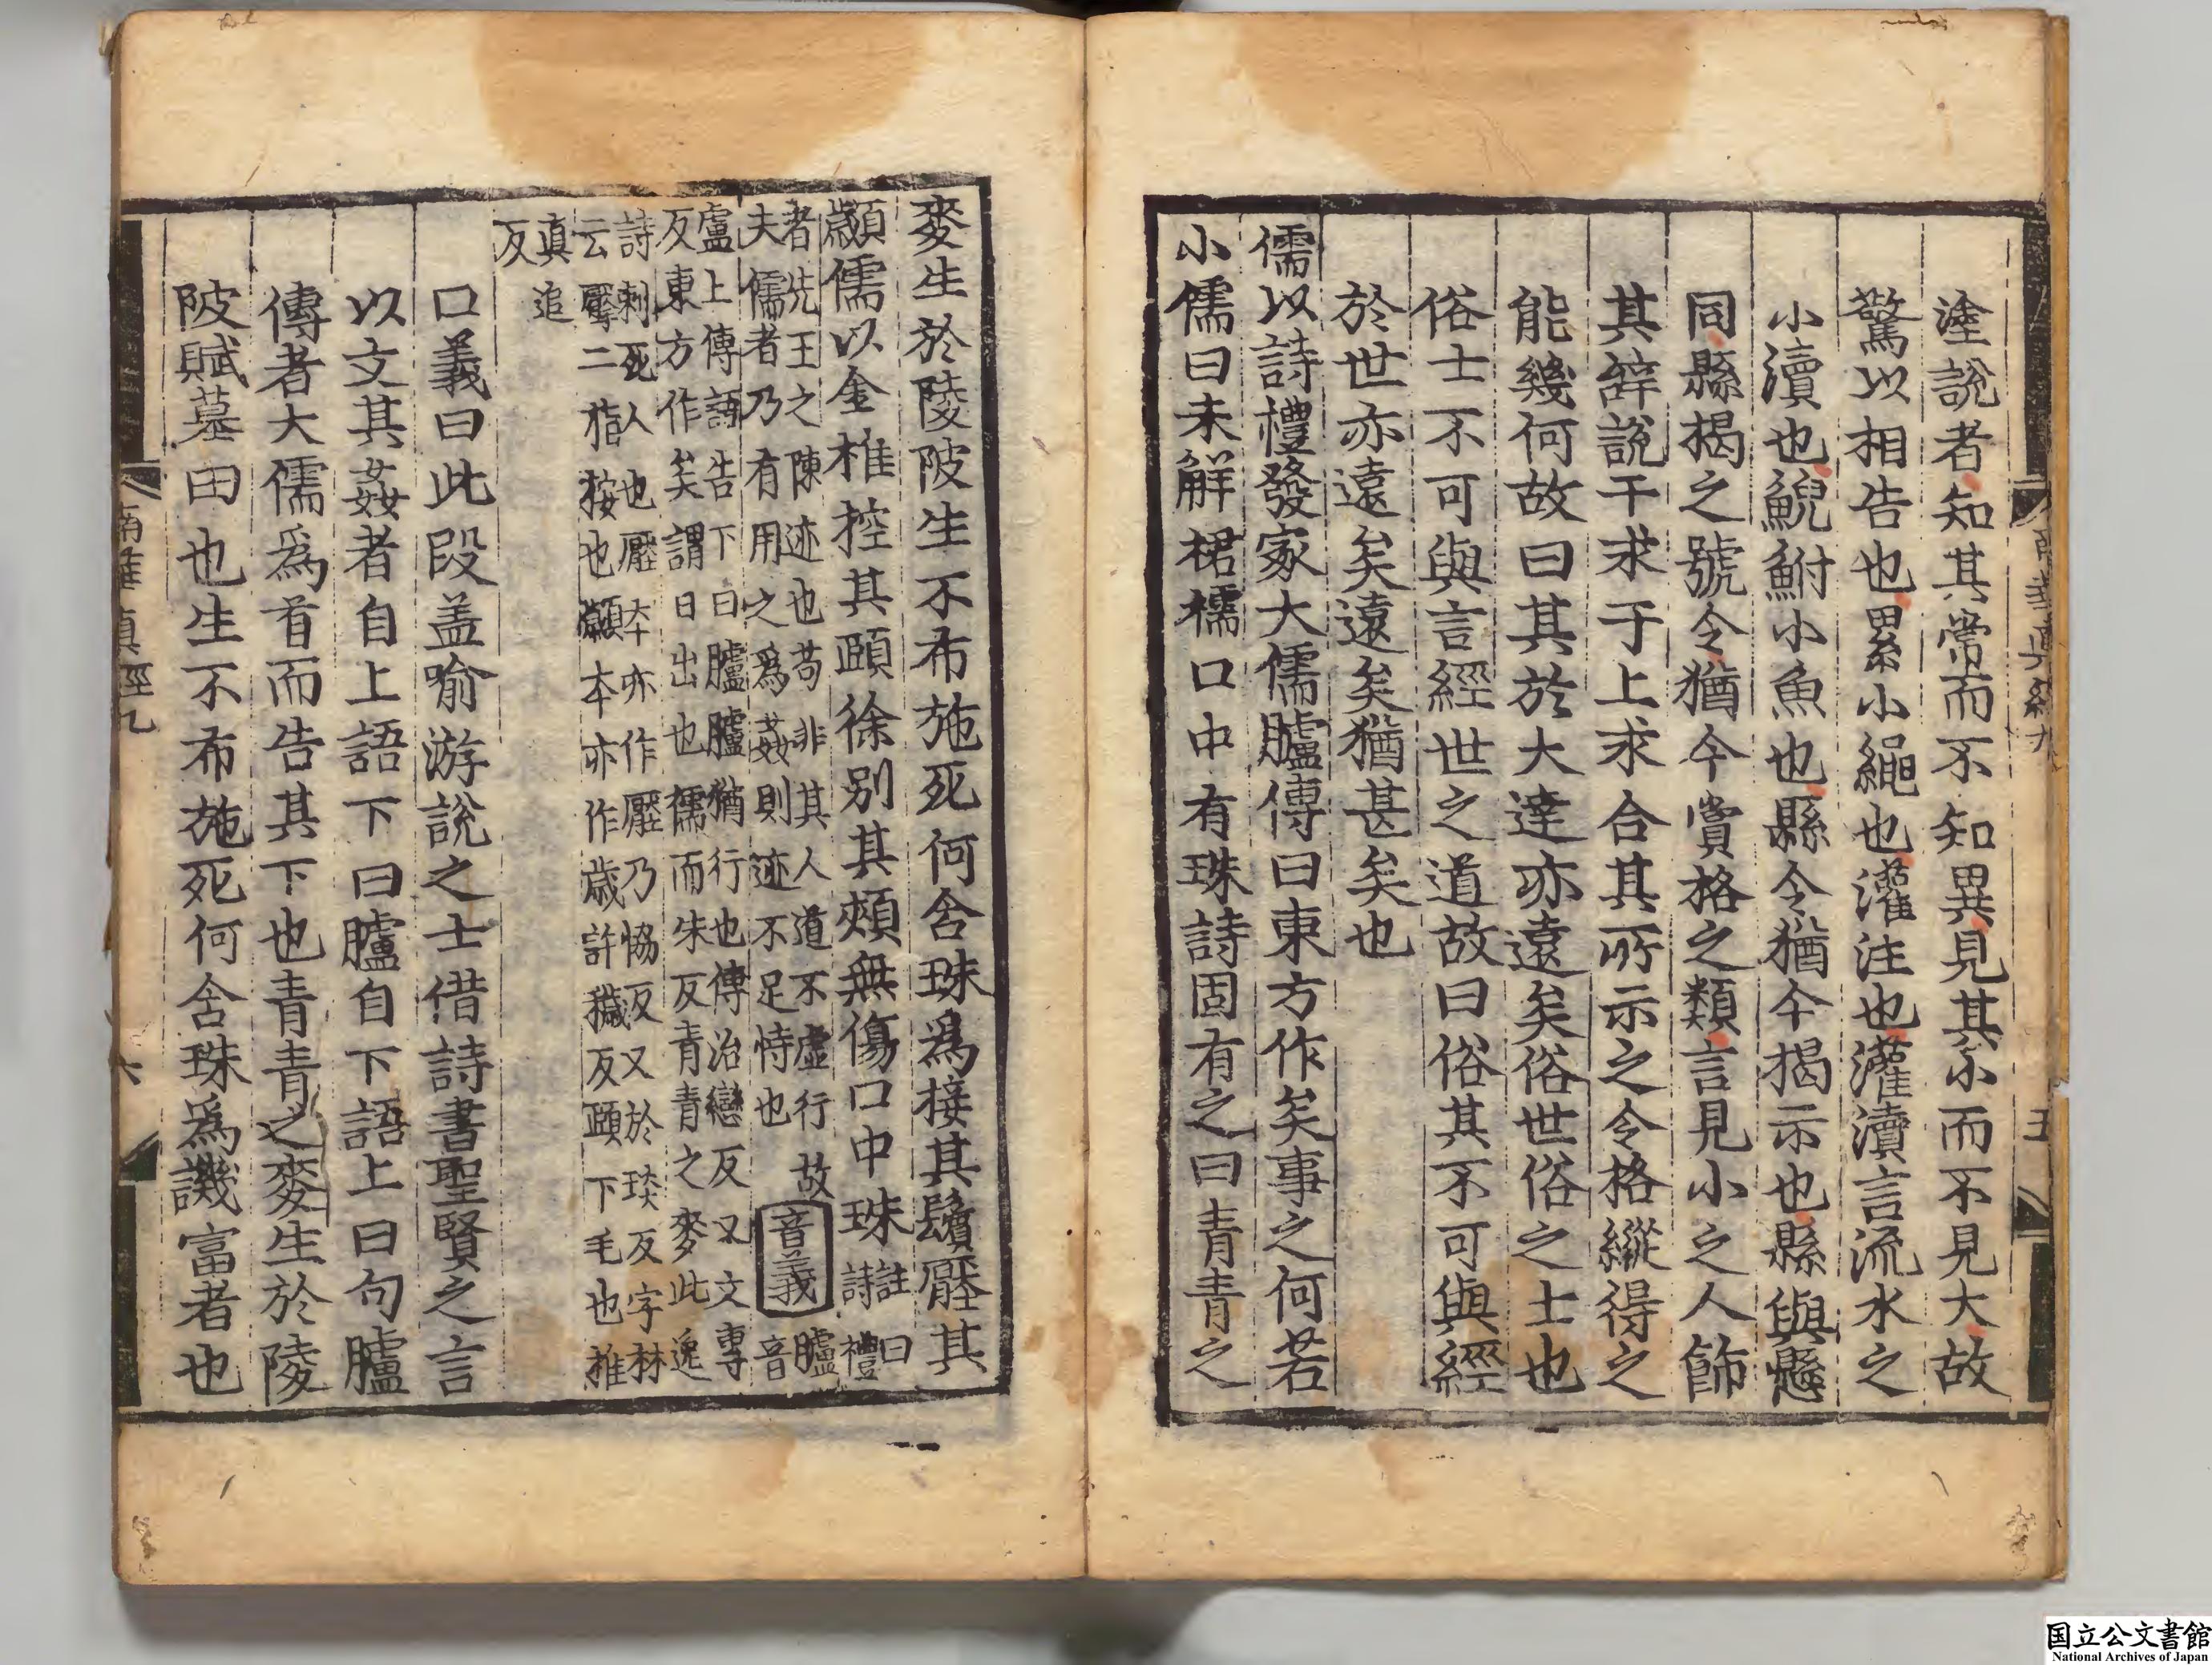 塗說者知其常而不知異見其小而不見大故
驚以相告也累小繩也灌注也灌瀆言流水之
小瀆也鯢鮒小魚也縣令猶今揭示也縣與懸
同縣揭之號令猶今賞格之類言見小之人飾
其辭說干求于上求合其所示之令格縱得之
能幾何故曰其於大達亦遠矣俗世俗之士也
俗士不可與言經世之道故曰俗其不可與經
於世亦遠矣遠矣猶甚矣也
儒以詩禮發冢大儒臚傳曰東方作矣事之何若
小儒曰未解裙襦口中有珠詩固有之曰青青之
五
麥生於陵陂生不布施死何含珠爲接其鬢壓其
顪儒以金椎控其頤徐別其頰無傷口中珠
註曰
詩禮
者先王之陳迹也苟非其人道不虛行故
夫儒者乃有用之爲姦則迹不足恃也
音義
臚
音
盧上傳語告下曰臚臚猶行也傳治戀反又文專
反東方作矣謂日出也襦而朱反青青之麥此逸
詩刺死人也壓本亦作壓乃協反又於琰反字林
云壓二指按也顪本亦作歲許穢反頤下毛也椎
直追
反
口義曰此段盖喻游說之士借詩書聖賢之言
以文其姦者自上語下曰臚自下語上曰句臚
傳者大儒爲首而告其下也青青之麥生於陵
陂賦墓田也生不布施死何含珠爲譏富者也
南華真經九
六
国立公文書館
National Archives of Japan